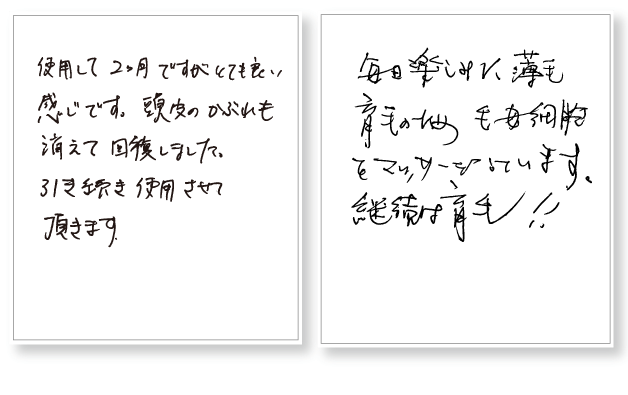 使用して2ヶ月ですがとても良い
感じです。頭皮のかぶれも
消えて回復しました。
引き続き使用させて
頂きます。
毎日楽しみに、薄毛
育毛の為、毛母細胞
をマッサージしています。
継続は育毛!!